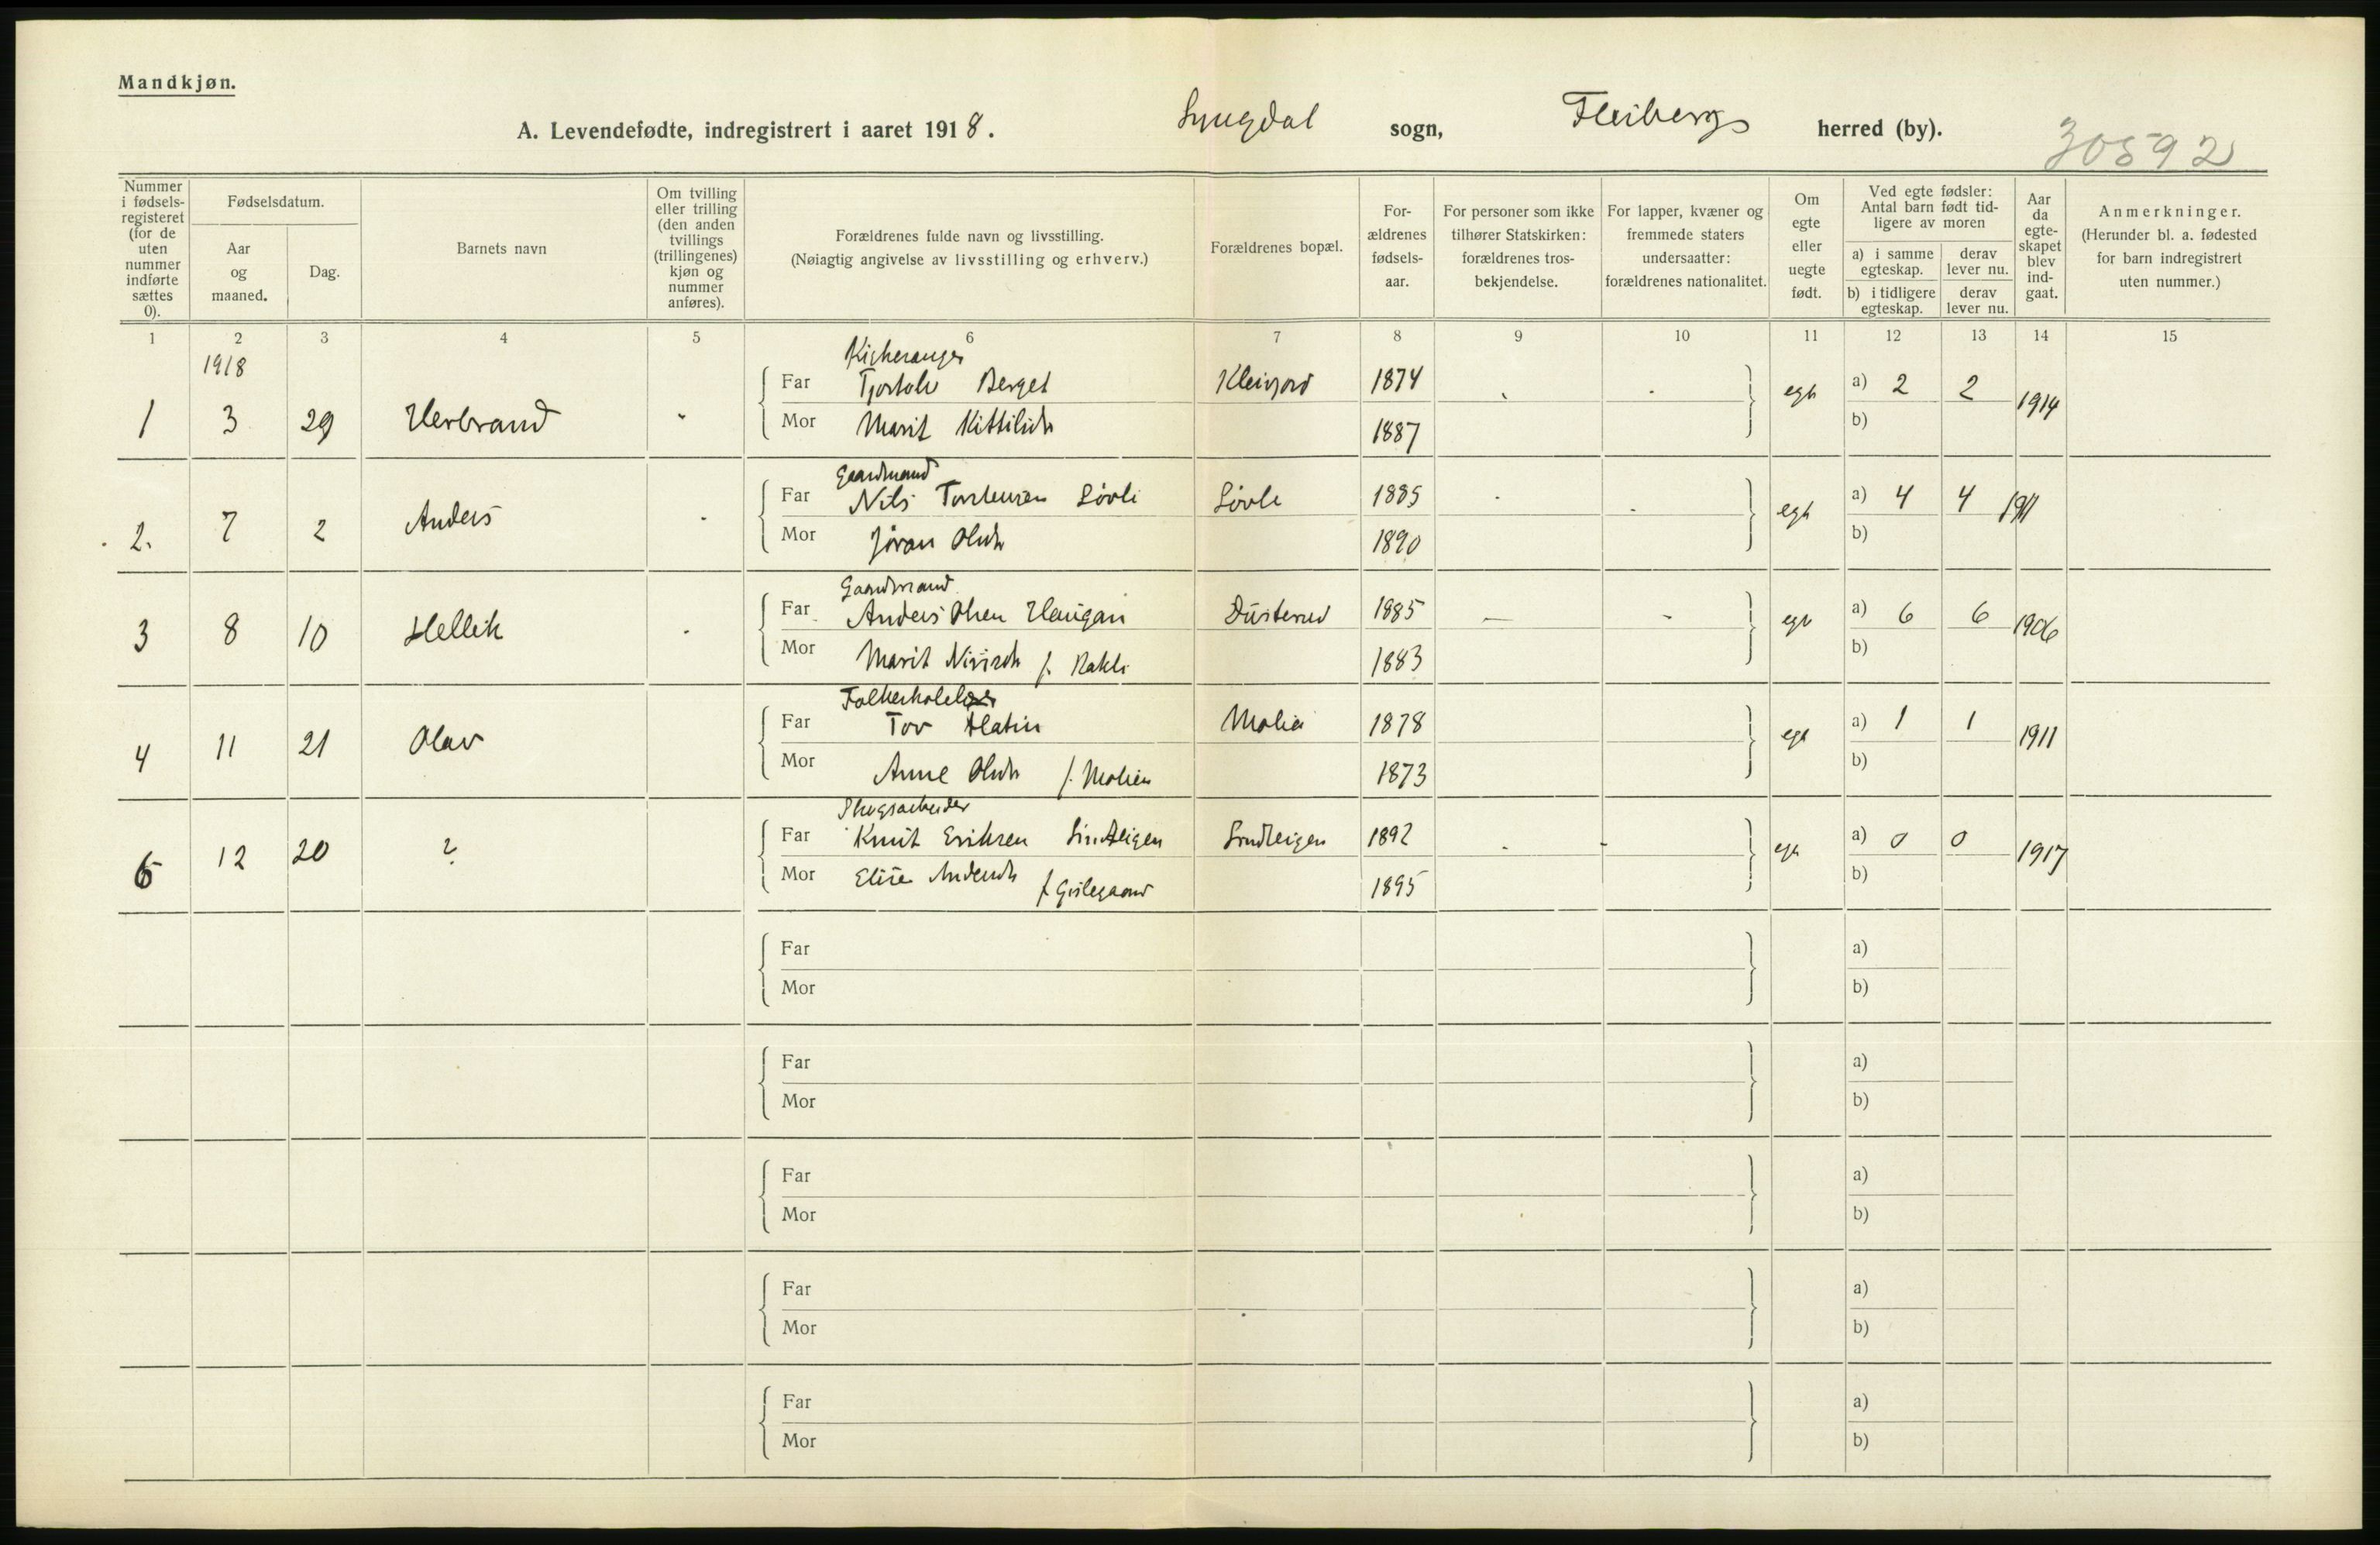 Mandkjøn.
A. Levendefødte, indregistrert i aaret 1918. Lyngdal sogn, Flesberg herred (by).
30592
Nummer i fødsels-registeret (for de uten nummer indførte sættes 0).
Fødselsdatum.
Aar og maaned.
Dag.
Barnets navn
Om tvilling eller trilling (den anden tvillings (trillingenes) kjøn og nummer anføres).
Forældrenes fulde navn og livsstilling.
(Nøiagtig angivelse av livsstilling og erhverv.)
Forældrenes bopæl.
For-ældrenes fødsels-aar.
For personer som ikke tilhører Statskirken: forældrenes tros-bekjendelse.
For lapper, kvæner og fremmede staters undersaatter: forældrenes nationalitet.
Om egte eller uegte født.
Ved egte fødsler: Antal barn født tid-ligere av moren
a) i samme egteskap.
derav lever nu.
b) i tidligere egteskap.
derav lever nu.
Aar da egte-skapet blev ind-gaat.
Anmerkninger.
(Herunder bl. a. fødested for barn indregistrert uten nummer.)
1 2 3 4 5 6 7 8 9 10 11 12 13 14 15
1918
Kirkesanger
1 3 29 Herbrand - Far Tjostolv Berget Kleivjord 1874 egte a) 2 2 1914
Mor Marit Kittilsdtr 1887 b)
Gaardmand
2. 7 2 Anders - Far Nils Torstensen Løvli Løvli 1885 egte a) 4 4 1911
Mor Jøran Olsdtr 1890 b)
Gaardmand
3 8 10 Hellik - Far Anders Olsen Haugan Dusterud 1885 — - egte a) 6 6 1906
Mor Marit f. Bakli 1883 b)
4 11 21 Olav Far Tov Flatin Molia 1878 egte a) 1 1 1911
Mor Anne Olsdtr f. Molien 1873 b)
Skogsarbeider
5 12 20 ? Far Knut Eriksen Sindleigen 1892 - - egte a) 0 0 1917
Mor Elise Andersdtr f. Gislegaard 1895 b)
Far a)
Mor b)
Far a)
Mor b)
Far a)
Mor b)
Far a)
Mor b)
Far a)
Mor b)